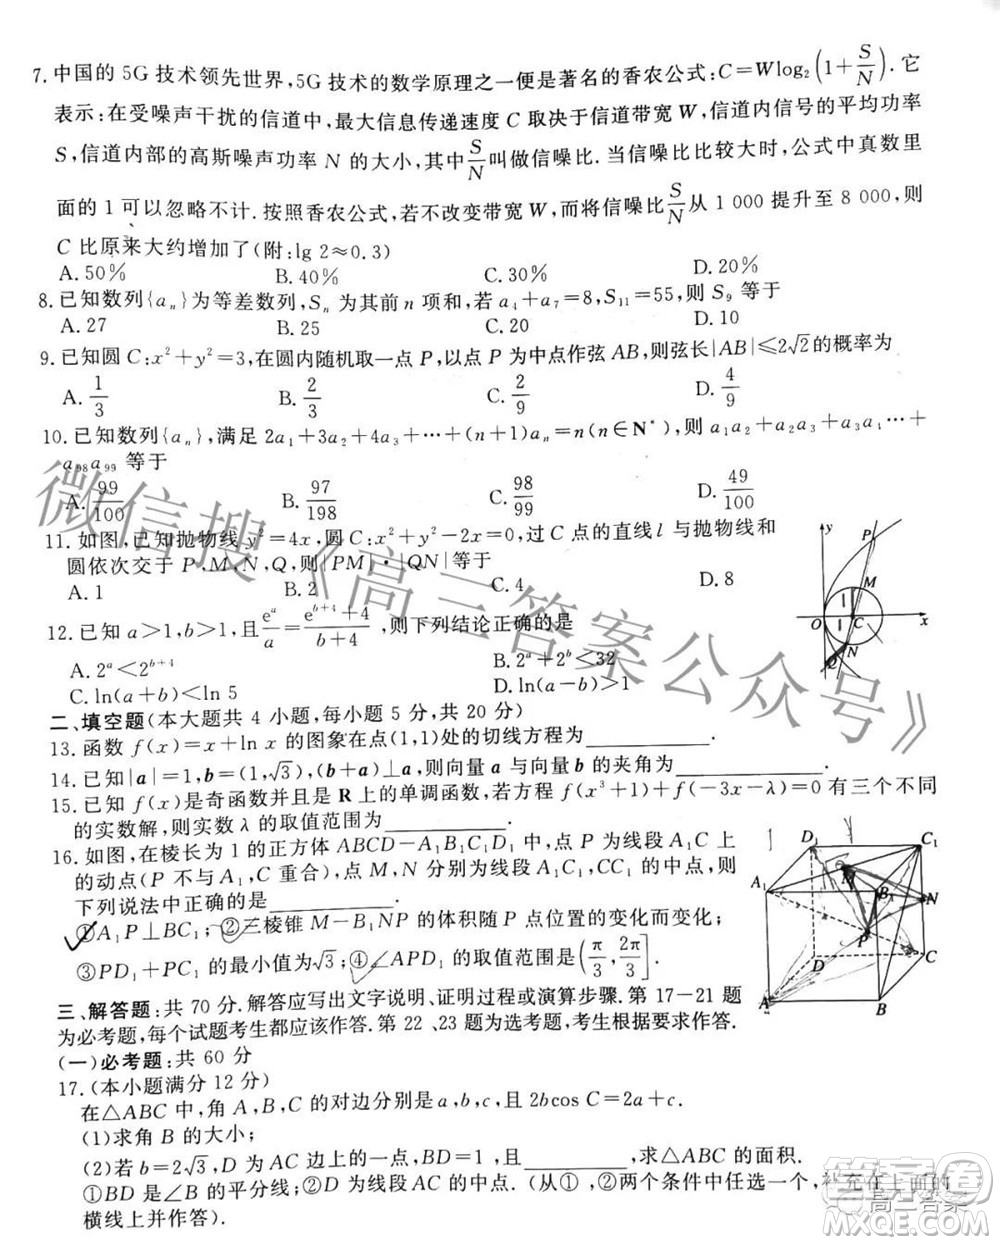 7. 中国的 5G 技术领先世界,5G 技术的数学原理之一便是著名的香农公式:C=Wlog₂(1+S/N). 它
表示:在受噪声干扰的信道中,最大信息传递速度 C 取决于信道带宽 W,信道内信号的平均功率
S,信道内部的高斯噪声功率 N 的大小,其中 S/N 叫做信噪比. 当信噪比比较大时,公式中真数里
面的 1 可以忽略不计. 按照香农公式,若不改变带宽 W,而将信噪比 S/N 从 1 000 提升至 8 000,则
C 比原来大约增加了(附:lg 2≈0.3)
A. 50% B. 40% C. 30% D. 20%
8. 已知数列{aₙ}为等差数列,Sₙ 为其前 n 项和,若 a₄+a₇=8,S₁₁=55,则 S₉ 等于
A. 27 B. 25 C. 20 D. 10
9. 已知圆 C:x²+y²=3,在圆内随机取一点 P,以点 P 为中点作弦 AB,则弦长|AB|≤2√2的概率为
A. 1/3 B. 2/3 C. 2/9 D. 4/9
10. 已知数列{aₙ},满足 2a₁+3a₂+4a₃+…+(n+1)aₙ=n(n∈N*),则 a₁a₂+a₂a₃+a₃a₄+…+
a₉₈a₉₉ 等于
A. 99/100 B. 97/198 C. 98/99 D. 49/100
11. 如图,已知抛物线 y²=4x,圆 C:x²+y²-2x=0,过 C 点的直线 l 与抛物线和
圆依次交于 P,M,N,Q,则|PM|·|QN|等于
A. 1 B. 2 C. 4 D. 8
y P M 1 1 O C x N Q
12. 已知 a>1,b>1,且 eᵃ/a=(eᵇ⁺⁴+4)/(b+4),则下列结论正确的是
A. 2ᵃ<2ᵇ⁺⁴ B. 2ᵃ+2ᵇ<32
C. ln(a+b)<ln 5 D. ln(a+b)<b
二、填空题(本大题共 4 小题,每小题 5 分,共 20 分)
13. 函数 f(x)=x+ln x 的图象在点(1,1)处的切线方程为
14. 已知|a|=1,b=(1,√3),(b+a)⊥a,则向量 a 与向量 b 的夹角为
15. 已知 f(x)是奇函数并且是 R 上的单调函数,若方程 f(x³+1)+f(-3x-λ)=0 有三个不同
的实数解,则实数 λ 的取值范围为
16. 如图,在棱长为 1 的正方体 ABCD-A₁B₁C₁D₁ 中,点 P 为线段 A₁C 上
的动点(P 不与 A₁,C 重合),点 M,N 分别为线段 A₁D₁,CC₁ 的中点,则
下列说法中正确的是
①A₁P⊥BC₁;②三棱锥 M-B₁NP 的体积随 P 点位置的变化而变化;
③PD₁+PC₁ 的最小值为√3;④∠APD₁ 的取值范围是(π/3,2π/3]
D₁ C₁ A₁ M B₁ N P D C A B
三、解答题:共 70 分. 解答应写出文字说明、证明过程或演算步骤. 第 17-21 题
为必考题,每个试题考生都应该作答. 第 22、23 题为选考题,考生根据要求作答.
(一)必考题:共 60 分
17. (本小题满分 12 分)
在△ABC 中,角 A,B,C 的对边分别是a,b,c,且 2bcos C=2a+c.
(1)求角 B 的大小;
(2)若 b=2√3,D 为 AC 边上的一点,BD=1,且________,求△ABC 的面积.
①BD 是∠B 的平分线;②D 为线段 AC 的中点. (从①,②两个条件中任选一个,补充在上面的
横线上并作答).
微信搜《高三答案公众号》
答案圈
高三答案
MXQE.COM